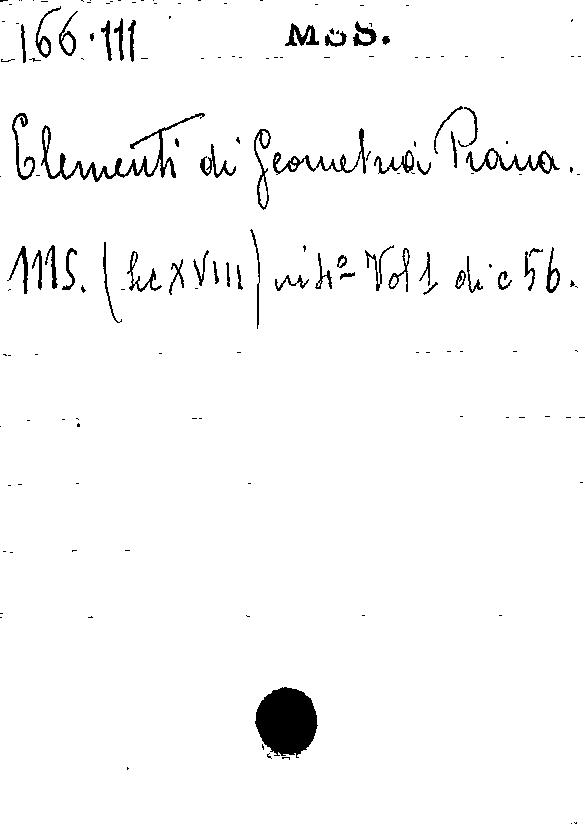 166.111 MSS.
Elementi di Geometria Piana.
MS. (Sec XVIII) in 4º Vol 1 di c 56.